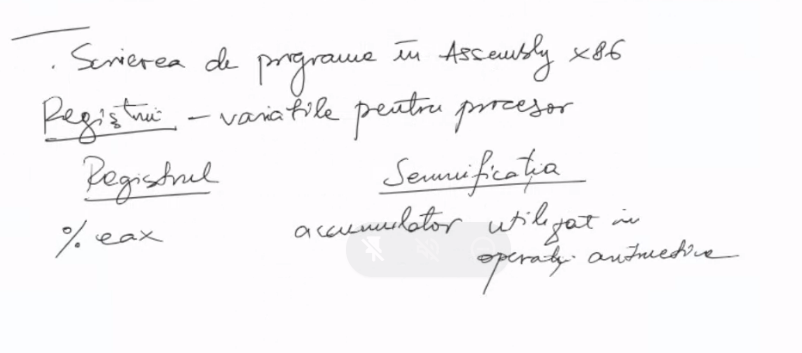 . Scrierea de programe în Assembly x86
Regiștrii – variabile pentru procesor
Registrul Semnificația
% eax accumulator utilizat în
operații aritmetice